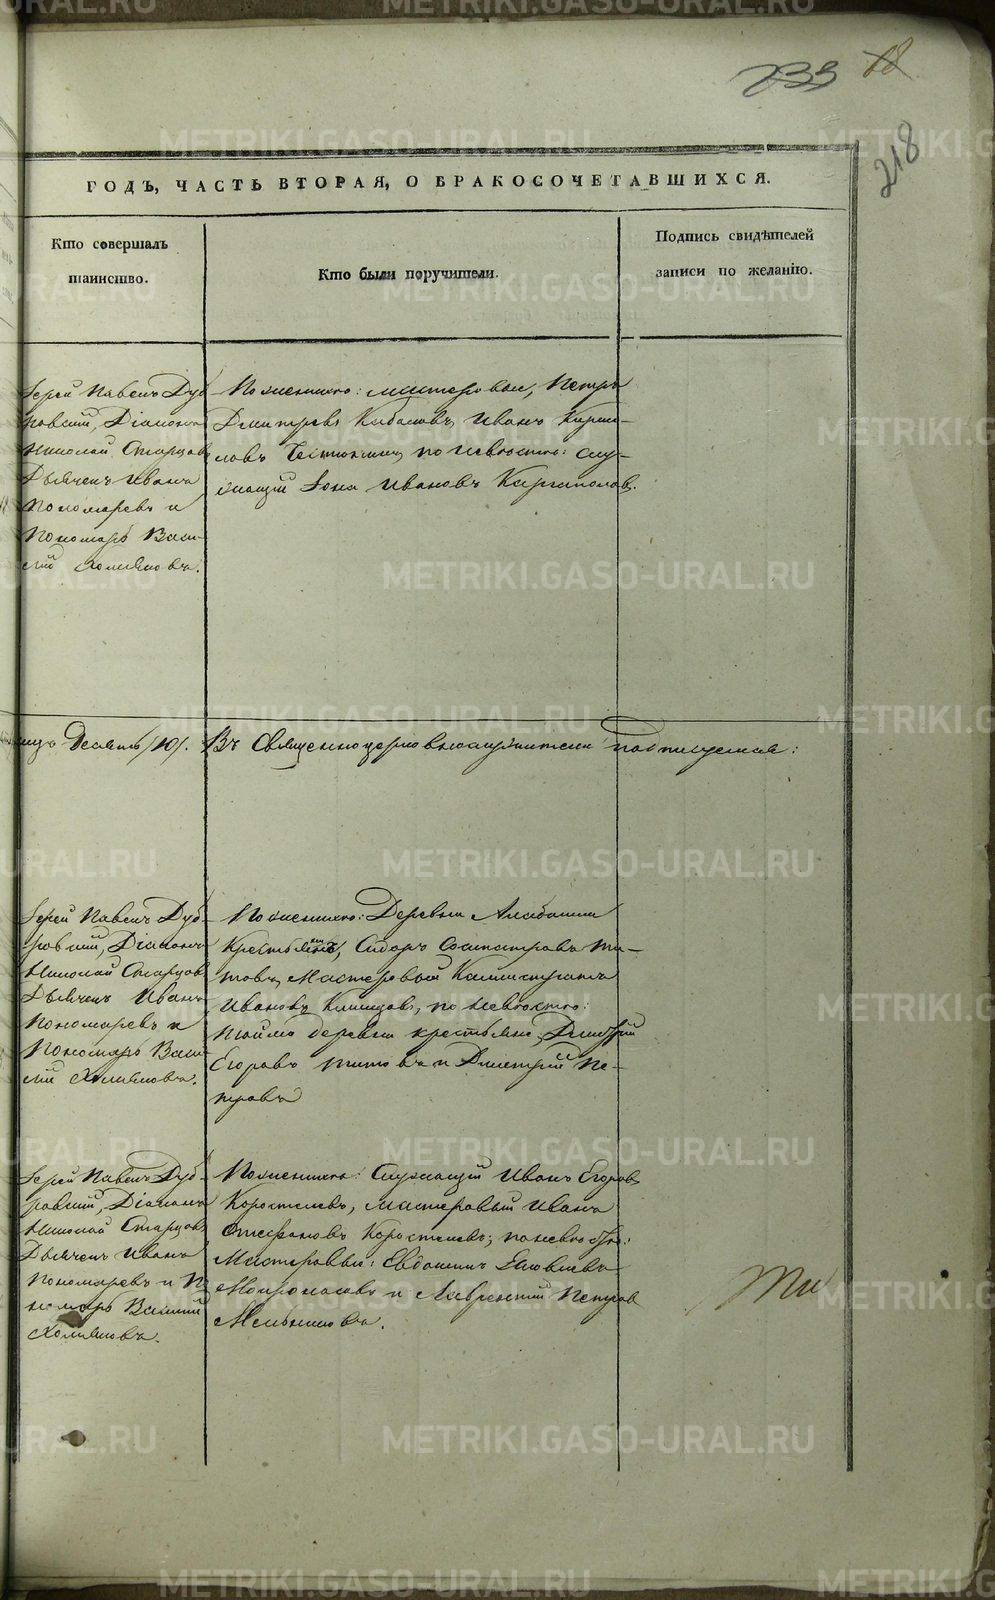 233 18
218
ГОДЪ, ЧАСТЬ ВТОРАЯ, О БРАКОСОЧЕТАВШИХСЯ.
Кто совершалъ таинство.
Кто были поручители.
Подпись свидѣтелей записи по желанію.
Іерей Павелъ Дуб-
ровскій, Діаконъ
Николай Старцовъ
Дьячекъ Иванъ
Пономаревъ и
Пономарь Васи-
лій Холмовъ.
По женихѣ: мастеровые, Петръ
Дмитревъ Кабаковъ, Иванъ Кирил-
ловъ по невѣстѣ: слу-
жащій Іона Ивановъ Каргаполовъ.
Десять /10/.
Въ Священноцерковнослужители подписуемся:
Іерей Павелъ Дуб-
ровскій, Діаконъ
Николай Старцовъ
Дьячекъ Иванъ
Пономаревъ и
Пономарь Васи-
лій Холмовъ.
По женихѣ: Деревни
Крестьянѣ, Сидоръ Ти-
товъ, Мастеровый
Ивановъ по невѣстѣ:
деревни крестьяне
Егоровъ Титовъ и Дмитрій Пе-
тровъ
Іерей Павелъ Дуб-
ровскій, Діаконъ
Николай Старцовъ
Дьячекъ Иванъ
Пономаревъ и По-
номарь Василій
Холмовъ.
По женихѣ: Служащій Иванъ Егоровъ
Коростелевъ, мастеровый Иванъ
Стефановъ Коростелевъ; по невѣстѣ:
Мастеровые: Евдокимъ Яковлевъ
и Лаврентій Петровъ
Меньшиковъ.
METRIKI.GASO-URAL.RU